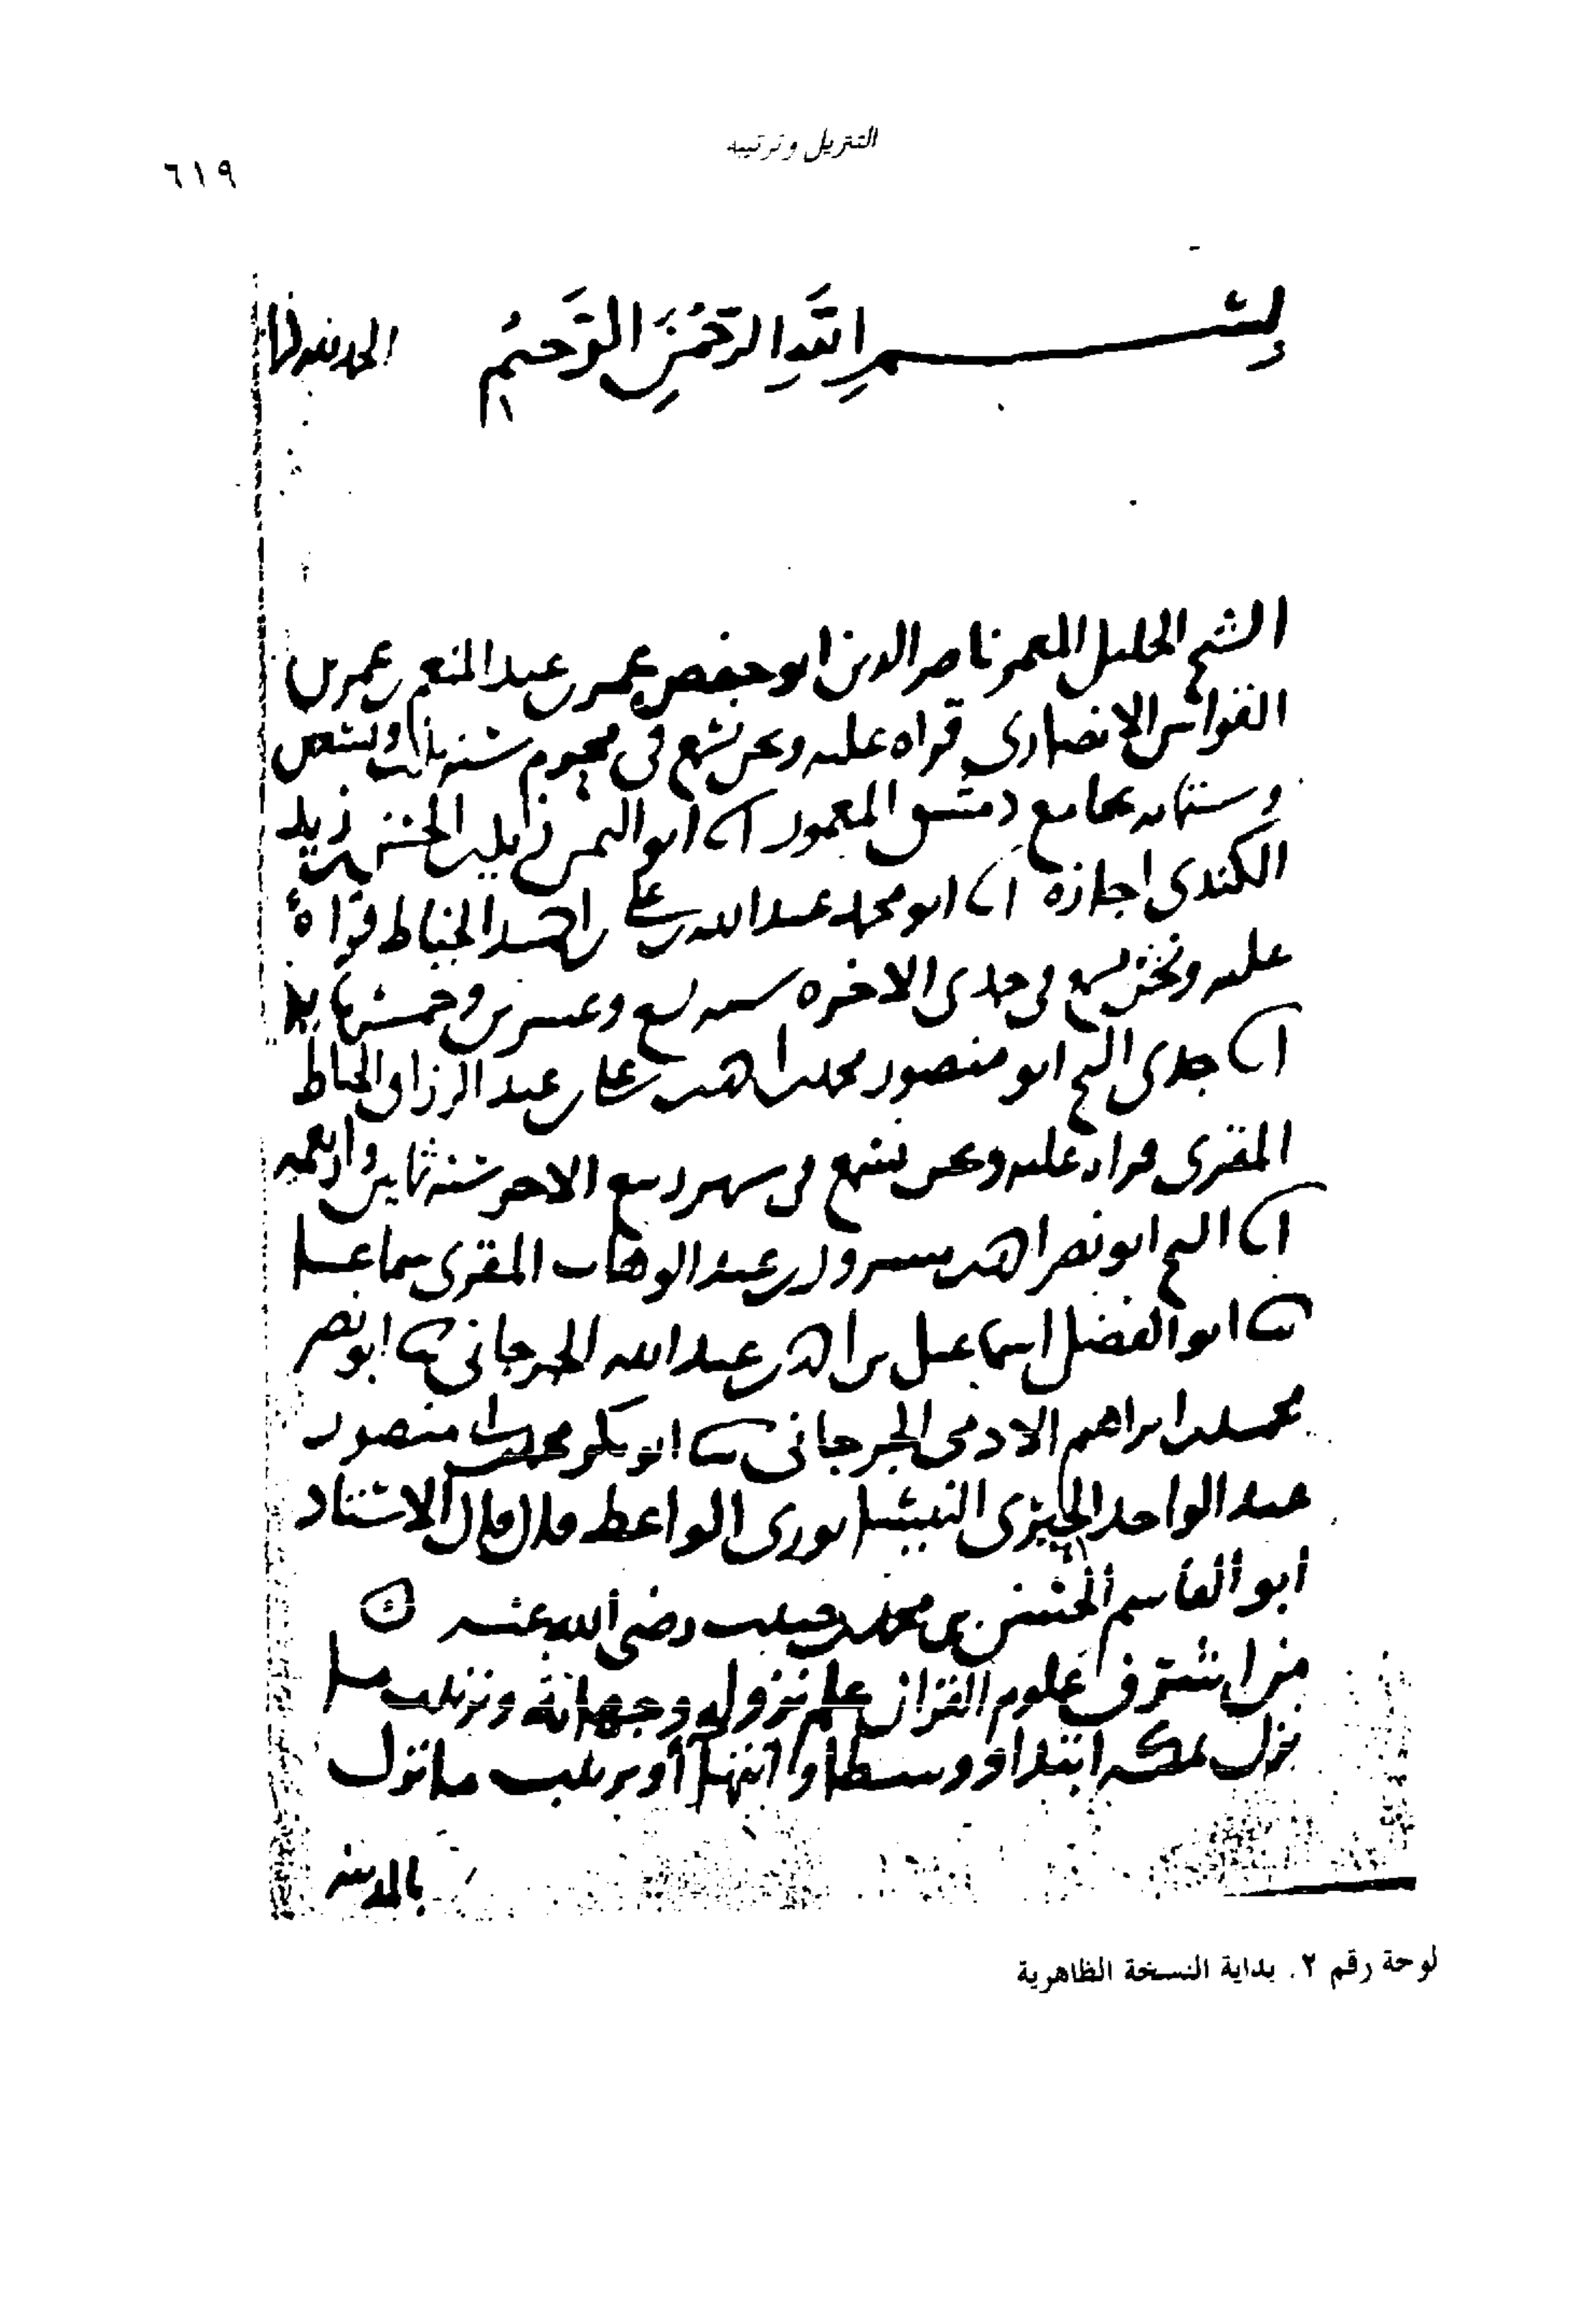 التنزيل وترتيبه
٦١٩
بسم الله الرحمن الرحيم الحمد لله
الشيخ الجليل المعمر ناصر الدين ابو حفص عمر بن عبد المنعم بن عمر بن
القواس الانصاري قراه عليه ونحن نسمع في محرم سنة وتسعين
وستمايه بجامع دمشق المعمور ابو اليمن زيد بن الحسن بن زيد
الكندي اجازه ابو محمد عبد الله بن علي بن احمد الخياط قراة
عليه ونحن نسمع في جمادى الاخره سنه سبع وعشرين وخمسمايه
جدي الشيخ ابو منصور محمد بن احمد بن علي بن عبد الرزاق الخياط
المقرى قراه عليه ونحن نسمع في شهر ربيع الاخر سنة ثمانين واربعمايه
الشيخ ابو نصر احمد بن مسرور بن عبد الوهاب المقرى سماعا
ابو الفضل اسماعيل بن احمد بن عبد الله الجرجاني ابو نصر
محمد بن ابراهيم الادمي الجرجاني ابو بكر محمد بن منصور
عبد الواحد الجيزي النيسابوري الواعظ قال قال الاستاد
ابو القاسم الحسن بن محمد بن حبيب رضي الله عنه
من اشرف علوم القران علم نزوله وجهاته وترتيب ما
نزل بمكه ابتداء ووسطا وانتهاء وترتيب ما نزل
بالمدينه
لوحة رقم ٢. بداية النسخة الظاهرية